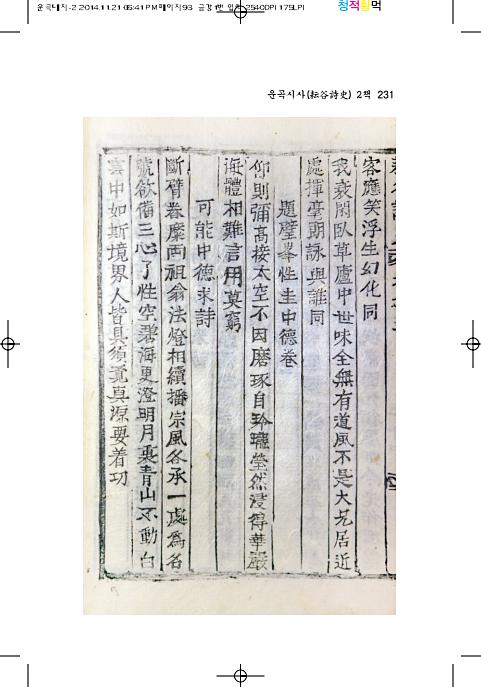 운곡시사-2 2014.11.21 05:41 PM 페이지93
2540DPI 175LPI
청적황먹
운곡시사(耘谷詩史) 2책 231
客應笑浮生幻化同
我衰閑臥草廬中世味全無有道風不是大兄居近
處揮毫朗詠與誰同
題璧峯性圭中德卷
仰則彌高接太空不因磨琢自玲瓏瑩然浸得華嚴
海體相難言用莫窮
可能中德求詩
斷臂春糜兩祖翁法燈相續播宗風各承一處爲名
號欲備三心了性空碧海更澄明月乘青山不動白
雲中如斯境界人皆具須覓眞源要着功